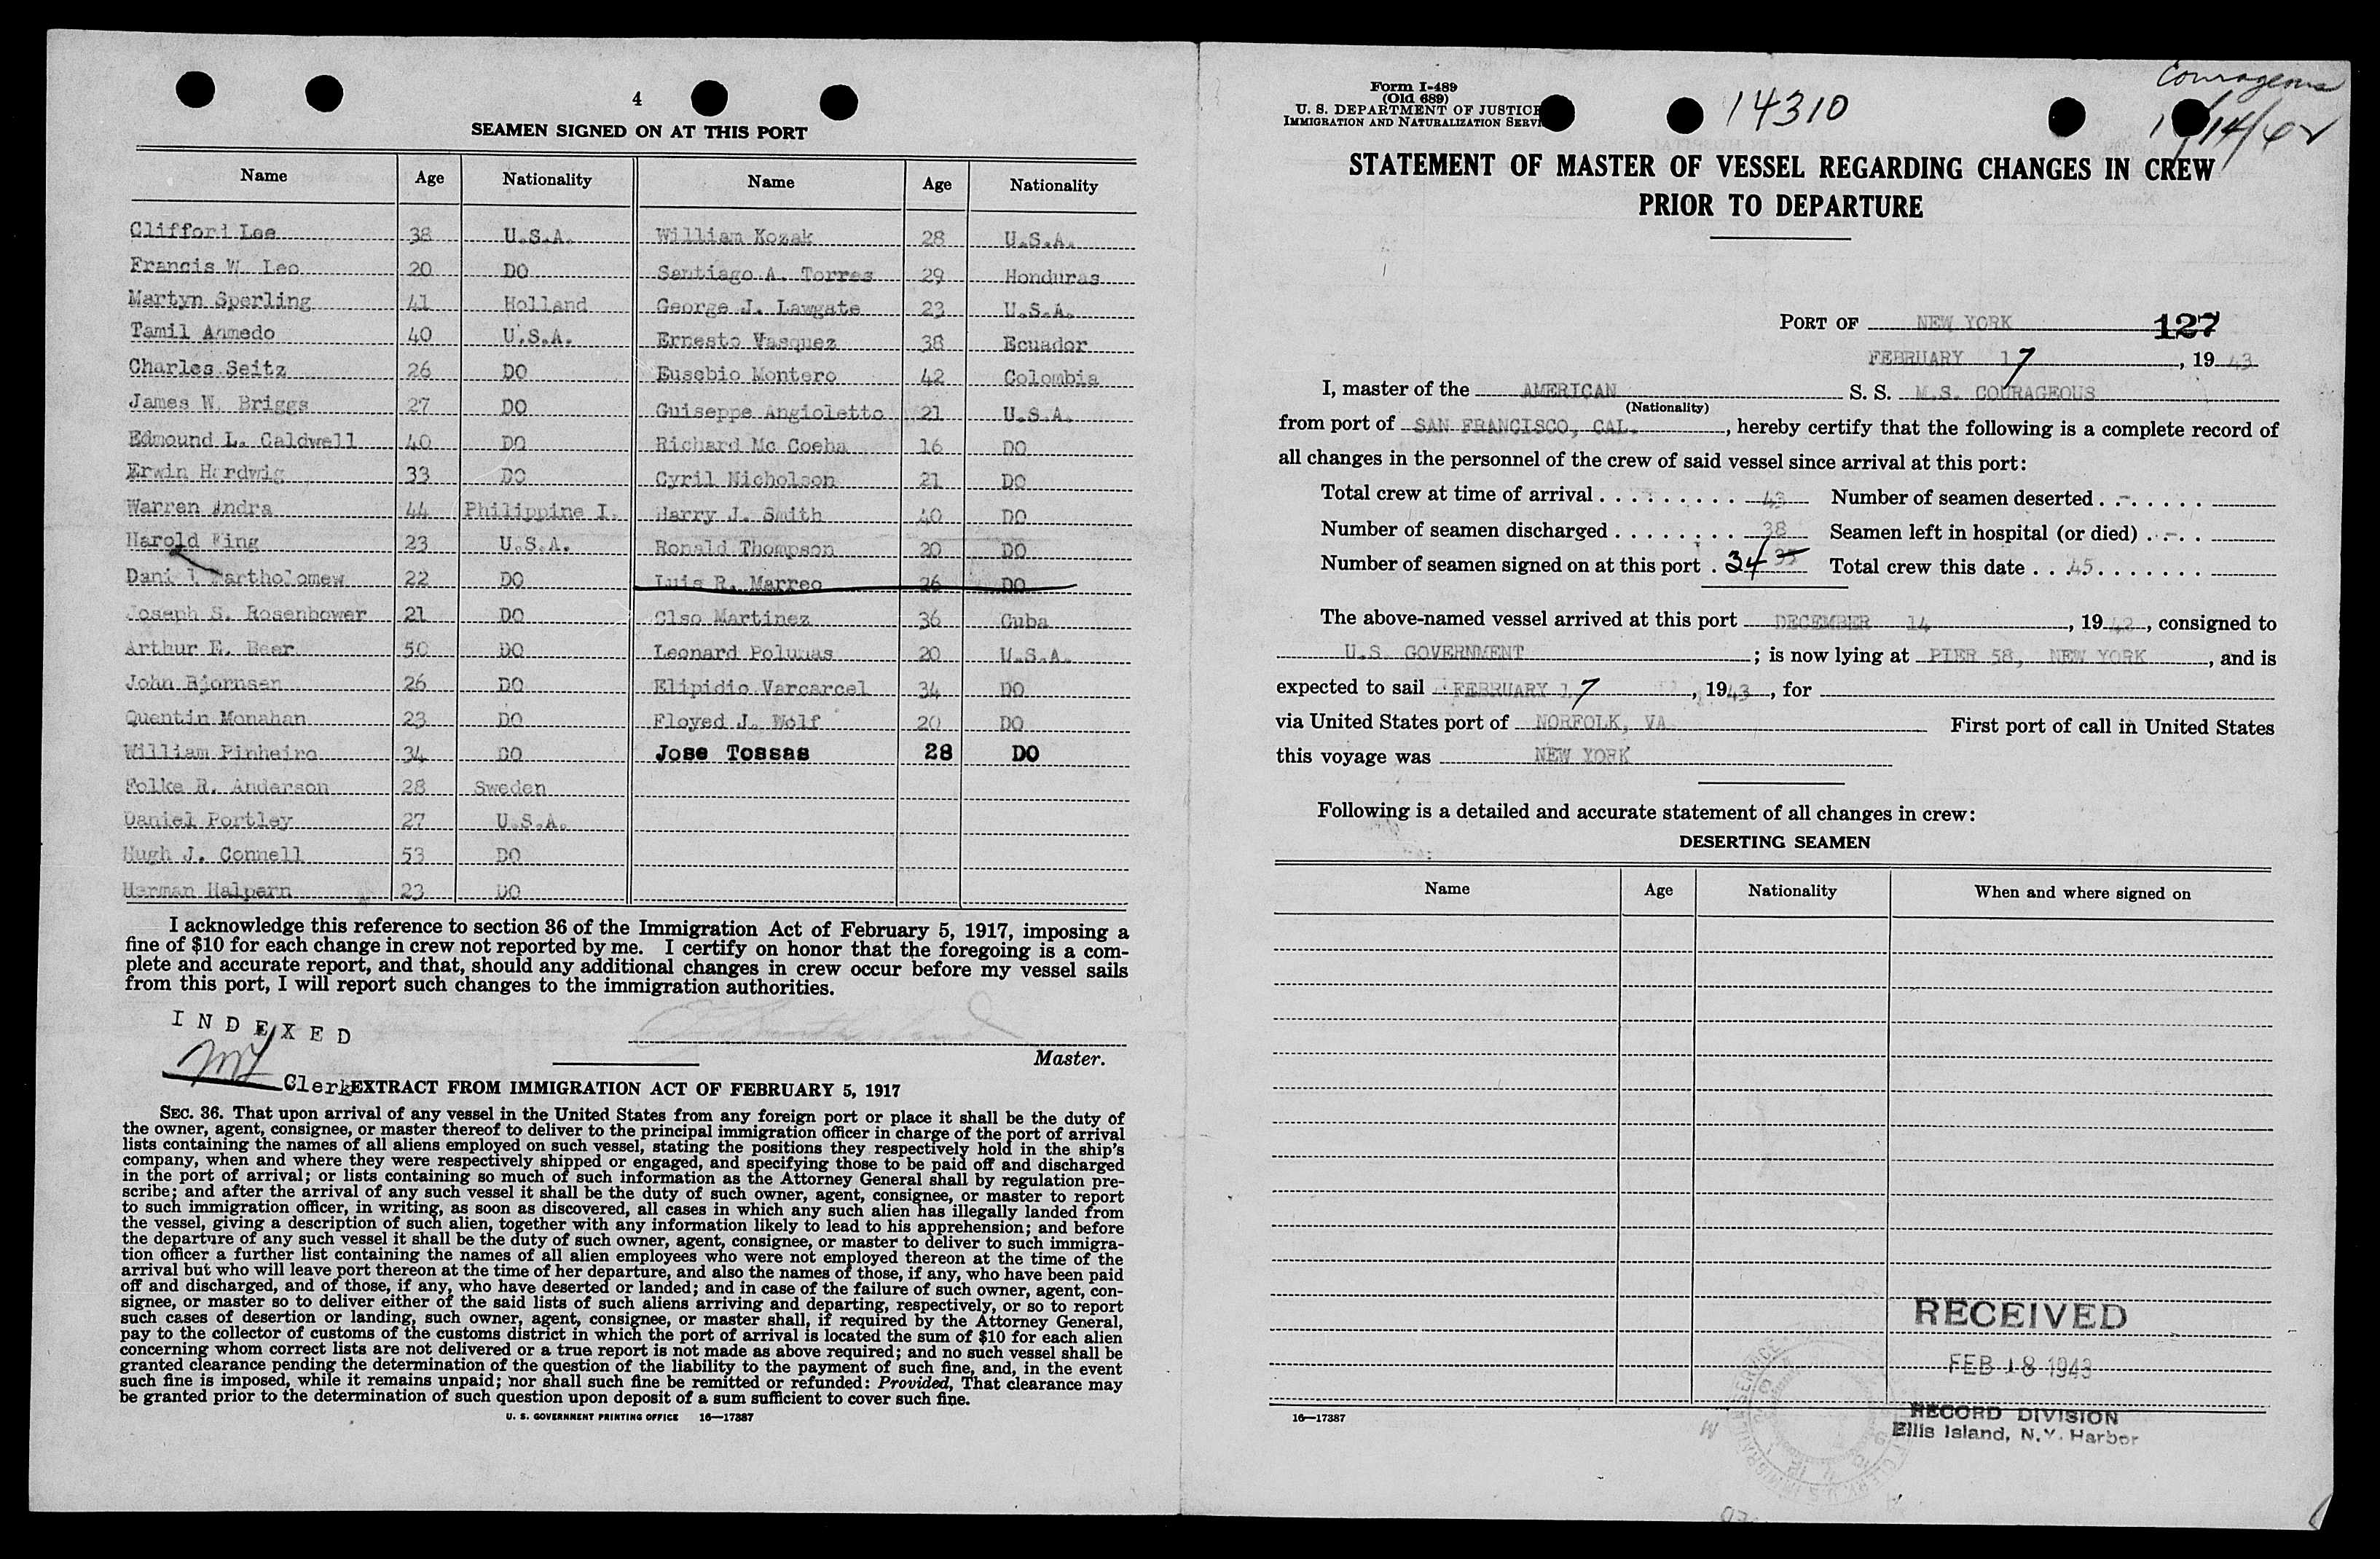 4
SEAMEN SIGNED ON AT THIS PORT
Name Age Nationality Name Age Nationality
Clifford Lee 38 U.S.A. William Kozak 28 U.S.A.
Francis W. Leo 20 DO Santiago A. Torres 29 Honduras
Martyn Sperling 41 Holland George J. Lawgate 23 U.S.A.
Tamil Ahmedo 40 U.S.A. Ernesto Vasquez 38 Ecuador
Charles Seitz 26 DO Eusebio Montero 42 Colombia
James W. Briggs 27 DO Guiseppe Angioletto 21 U.S.A.
Edmound L. Caldwell 40 DO Richard Mc Coeha 16 DO
Erwin Hardwig 33 DO Cyril Nicholson 21 DO
Warren Andra 44 Philippine I. Harry J. Smith 40 DO
Harold King 23 U.S.A. Ronald Thompson 20 DO
Daniel Bartholomew 22 DO Luis R. Marreo 26 DO
Joseph S. Rosenbower 21 DO Clso Martinez 36 Cuba
Arthur E. Beer 50 DO Leonard Polumas 20 U.S.A.
John Bjornsen 26 DO Elipidio Varcarcel 34 DO
Quentin Monahan 23 DO Floyed J. Wolf 20 DO
William Pinheiro 34 DO Jose Tossas 28 DO
Folke R. Anderson 28 Sweden
Daniel Portley 27 U.S.A.
Hugh J. Connell 53 DO
Herman Halpern 23 DO
I acknowledge this reference to section 36 of the Immigration Act of February 5, 1917, imposing a
fine of $10 for each change in crew not reported by me. I certify on honor that the foregoing is a com-
plete and accurate report, and that, should any additional changes in crew occur before my vessel sails
from this port, I will report such changes to the immigration authorities.
INDEXED
Master.
Clerk
EXTRACT FROM IMMIGRATION ACT OF FEBRUARY 5, 1917
SEC. 36. That upon arrival of any vessel in the United States from any foreign port or place it shall be the duty of
the owner, agent, consignee, or master thereof to deliver to the principal immigration officer in charge of the port of arrival
lists containing the names of all aliens employed on such vessel, stating the positions they respectively hold in the ship's
company, when and where they were respectively shipped or engaged, and specifying those to be paid off and discharged
in the port of arrival; or lists containing so much of such information as the Attorney General shall by regulation pre-
scribe; and after the arrival of any such vessel it shall be the duty of such owner, agent, consignee, or master to report
to such immigration officer, in writing, as soon as discovered, all cases in which any such alien has illegally landed from
the vessel, giving a description of such alien, together with any information likely to lead to his apprehension; and before
the departure of any such vessel it shall be the duty of such owner, agent, consignee, or master to deliver to such immigra-
tion officer a further list containing the names of all alien employees who were not employed thereon at the time of the
arrival but who will leave port thereon at the time of her departure, and also the names of those, if any, who have been paid
off and discharged, and of those, if any, who have deserted or landed; and in case of the failure of such owner, agent, con-
signee, or master so to deliver either of the said lists of such aliens arriving and departing, respectively, or so to report
such cases of desertion or landing, such owner, agent, consignee, or master shall, if required by the Attorney General,
pay to the collector of customs of the customs district in which the port of arrival is located the sum of $10 for each alien
concerning whom correct lists are not delivered or a true report is not made as above required; and no such vessel shall be
granted clearance pending the determination of the question of the liability to the payment of such fine, and, in the event
such fine is imposed, while it remains unpaid; nor shall such fine be remitted or refunded: Provided, That clearance may
be granted prior to the determination of such question upon deposit of a sum sufficient to cover such fine.
U. S. GOVERNMENT PRINTING OFFICE 16—17387
Form I-489
(Old 689)
U. S. DEPARTMENT OF JUSTICE
IMMIGRATION AND NATURALIZATION SERVI
14310
Courageous
14/42
STATEMENT OF MASTER OF VESSEL REGARDING CHANGES IN CREW
PRIOR TO DEPARTURE
PORT OF NEW YORK 127
FEBRUARY 17, 1943
I, master of the AMERICAN S. S. M.S. COURAGEOUS
(Nationality)
from port of SAN FRANCISCO, CAL., hereby certify that the following is a complete record of
all changes in the personnel of the crew of said vessel since arrival at this port:
Total crew at time of arrival 43 Number of seamen deserted -
Number of seamen discharged 38 Seamen left in hospital (or died) -
Number of seamen signed on at this port 34 35 Total crew this date 45
The above-named vessel arrived at this port DECEMBER 14, 1942, consigned to
U.S. GOVERNMENT; is now lying at PIER 58, NEW YORK, and is
expected to sail FEBRUARY 17, 1943, for
via United States port of NORFOLK, VA. First port of call in United States
this voyage was NEW YORK
Following is a detailed and accurate statement of all changes in crew:
DESERTING SEAMEN
Name Age Nationality When and where signed on
RECEIVED
FEB 18 1943
RECORD DIVISION
Ellis Island, N.Y. Harbor
16—17387